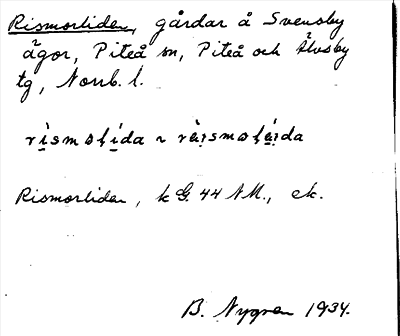 Rismorliden, gårdar å Svensby
ägor, Piteå sn, Piteå och Älvsby
tg, Norrb. l.
Rismorliden, k G. 44 NM., ek.
B. Nygren 1934.